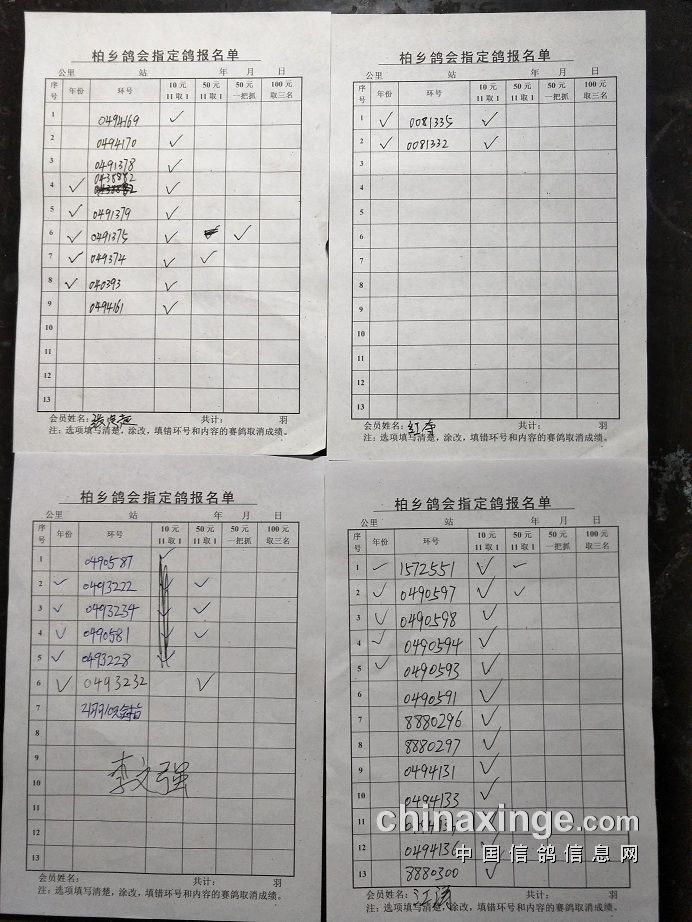 柏乡鸽会指定鸽报名单
公里 站 年 月 日
序号 年份 环号 10元11取1 50元11取1 50元一把抓 100元取三名
1 0494169 ✓
2 0494170 ✓
3 0491378 ✓
0438882
4 ✓ ✓
5 ✓ 0491379 ✓
6 ✓ 0491375 ✓ ✓
7 ✓ 049374 ✓ ✓
8 ✓ 040393 ✓
9 0494161 ✓
10
11
12
13
会员姓名: 共计: 羽
注:选项填写清楚,涂改,填错环号和内容的赛鸽取消成绩。
柏乡鸽会指定鸽报名单
公里 站 年 月 日
序号 年份 环号 10元11取1 50元11取1 50元一把抓 100元取三名
1 ✓ 0081335 ✓
2 ✓ 0081332 ✓
会员姓名: 共计: 羽
注:选项填写清楚,涂改,填错环号和内容的赛鸽取消成绩。
柏乡鸽会指定鸽报名单
公里 站 年 月 日
序号 年份 环号 10元11取1 50元11取1 50元一把抓 100元取三名
1 0490587 ✓
2 ✓ 0493222 ✓ ✓
3 ✓ 0493234 ✓ ✓
4 ✓ 0490581 ✓ ✓
5 ✓ 0493228 ✓
6 ✓ 0493232 ✓
7
8
9
10 李文强
11
12
13
会员姓名: 共计: 羽
注:选项填写清楚,涂改,填错环号和内容的赛鸽取消成绩。
柏乡鸽会指定鸽报名单
公里 站 年 月 日
序号 年份 环号 10元11取1 50元11取1 50元一把抓 100元取三名
1 ✓ 1572551 ✓ ✓
2 ✓ 0490597 ✓ ✓
3 ✓ 0490598 ✓
4 ✓ 0490594 ✓
5 ✓ 0490593 ✓
6 0490591 ✓
7 8880296 ✓
8 8880297 ✓
9 0494131 ✓
10 0494133 ✓
11
12 0494136 ✓
13 8880300 ✓
会员姓名: 共计: 羽
注:选项填写清楚,涂改,填错环号和内容的赛鸽取消成绩。
chinaxinge.com
中国信鸽信息网